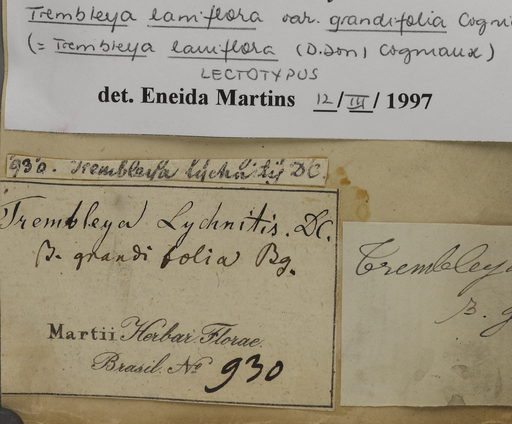 Trembleya laniflora var. grandifolia Cogni
(= Trembleya laniflora (D.Don) Cogniaux)
LECTOTYPUS
det. Eneida Martins 12/III/1997
930. Trembleya lychnitis DC.
Trembleya Lychnitis. DC.
β. grandifolia Bg.
Martii Herbar. Florae
Brasil. No 930
Trembleya
β. g